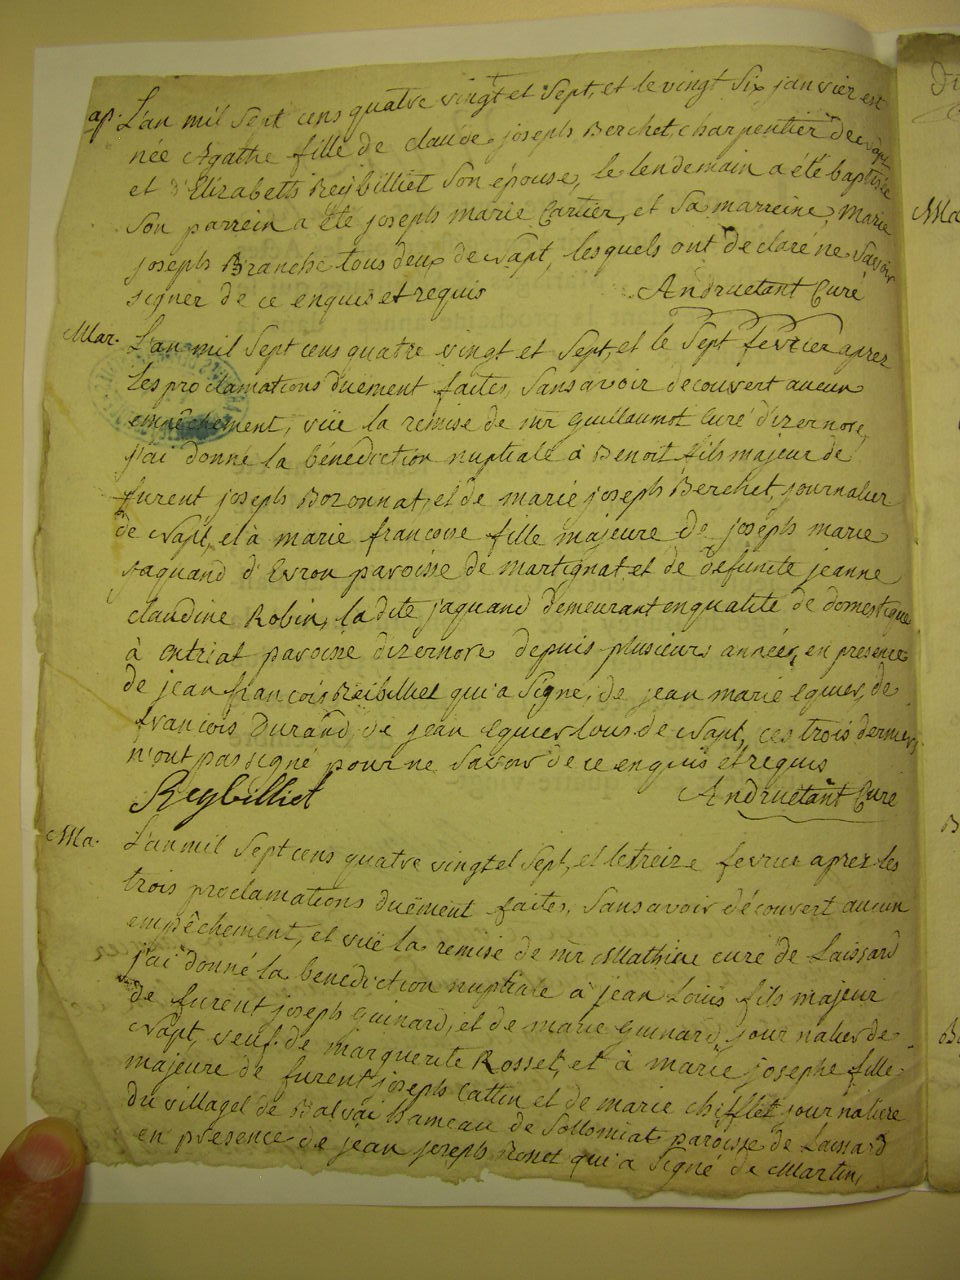 ap. L'an mil sept cens quatre vingt et sept, et le vingt six janvier est
née Agathe fille de claude joseph Berchet, charpentier de wapt
et d'Elizabeth Reybilliet son épouse, le lendemain a été baptisée
son parrein a été joseph marie Cartier, et sa marreine, Marie
joseph Branche tous deux de wapt, lesquels ont declaré ne savoir
signer de ce enquis et requis Andruetant Curé
Mar. L'an mil sept cens quatre vingt et sept, et le sept fevrier aprez
les proclamations duement faites, sans avoir découvert aucun
empêchement, vüe la remise de mr guillaumot Curé d'izernore,
j'ai donné la bénédiction nuptiale à Benoit fils majeur de
furent joseph Bozonnat, et de marie joseph Berchet, journalier
de wapt, et à marie françoise fille majeure de joseph marie
jaquand d'Evron paroisse de martignat et de défunte jeanne
claudine Robin, la dite jaquand demeurant en qualité de domestique
à entriat paroisse dizernore depuis plusieurs années, en presence
de jean françois Reibilliet qui a signé, de jean marie Eguier, de
françois Durand, de jean Eguier tous de wapt, ces trois derniers
n'ont pas signé pour ne savoir de ce enquis et requis
Reybilliet Andruetant Curé
Ma. L'an mil sept cens quatre vingt et sept, et le treize fevrier aprez les
trois proclamations duëment faites, sans avoir découvert aucun
empêchement, et vüe la remise de mr Mathieu curé de Laissard
j'ai donné la bénédiction nuptiale à jean Loüis fils majeur
de furent joseph guinard, et de marie guinard journalier de
wapt, veuf de marguerite Rosset, et à marie josephe fille
majeure de furent joseph Cattin et de marie chifflet journaliere
du village de Balvai hameau de sollomiat paroisse de Laissard
en presence de jean joseph Rosset qui a signé de Martin,
Ma